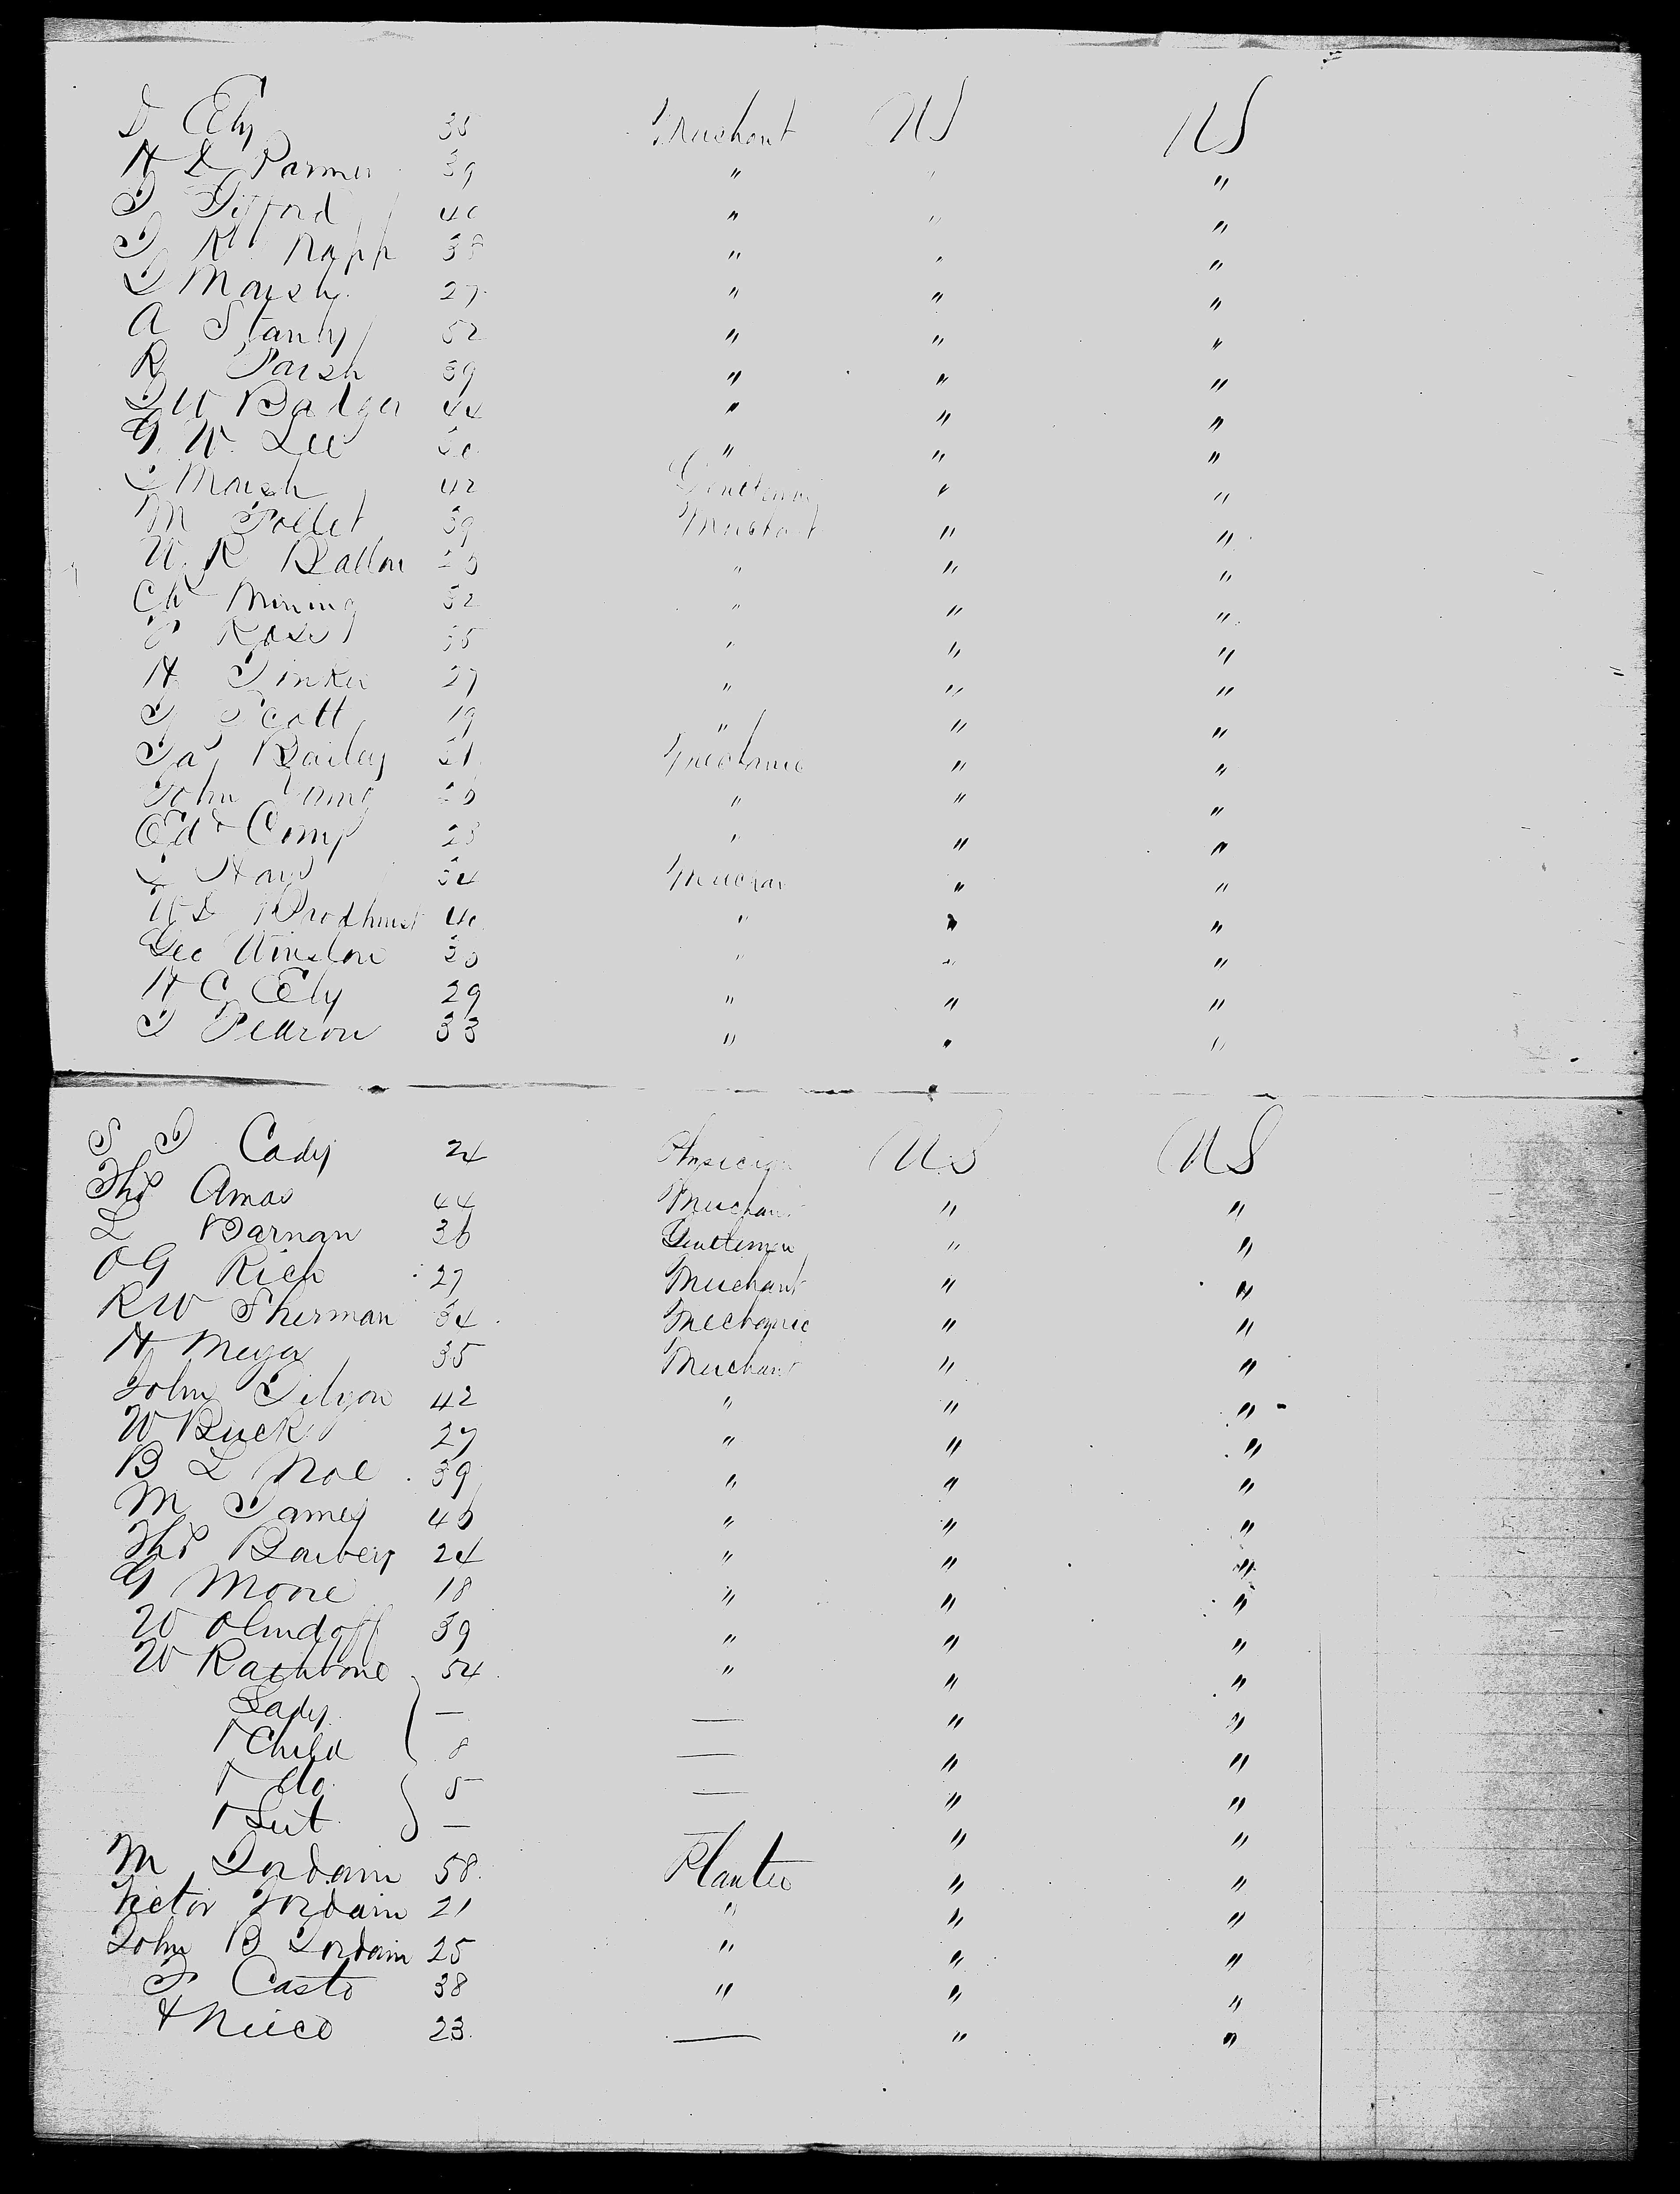 D Ely 35 Merchant US US
H L Parmer 39 " " "
T Gifford 40 " " "
T R Rapp 38 " " "
S Marsh 27 " " "
A Stanly 52 " " "
R Parsh 39 " " "
D W Badger 44 " " "
G. W. Lee 30 " " "
S Marsh 42 Gentleman " "
M Pollet 39 Merchant " "
W. R. Ballou " " "
Ch Mining 32 " " "
P Rose 35 " " "
H Tinker 27 " " "
T Scott 19 " " "
Jas Bailey 21 Mechanic " "
John Young " " "
Ed Comp 28 " " "
S Hays 34 Merchan " "
W L Brodhurst 40 " " "
Geo Winslow " " "
H C Ely 29 " " "
T Pearson 33 " " "
S J Cady 24 Physician US US
Ths Amos 44 Merchant " "
L Barnan 36 Gentleman " "
O G Rich 27 Merchant " "
R W Sherman 34 Mechanic " "
H Meyer 35 Merchant " "
John Tilyou 42 " " "
W Buck 27 " " "
B L Noe 39 " " "
M James 46 " " "
Ths Barbery 24 " " "
G Moore 18 " " "
W Olmdoff 39 " " "
W Rathbone 54 " " "
Lady — — " "
1 Child 8 — " "
1 do 5 — " "
1 Sert — — " "
M Jordain 58 Planter " "
Victor Jordain 21 " " "
John B Jordain 25 " " "
P Casto 38 " " "
& Niece 23 — " "